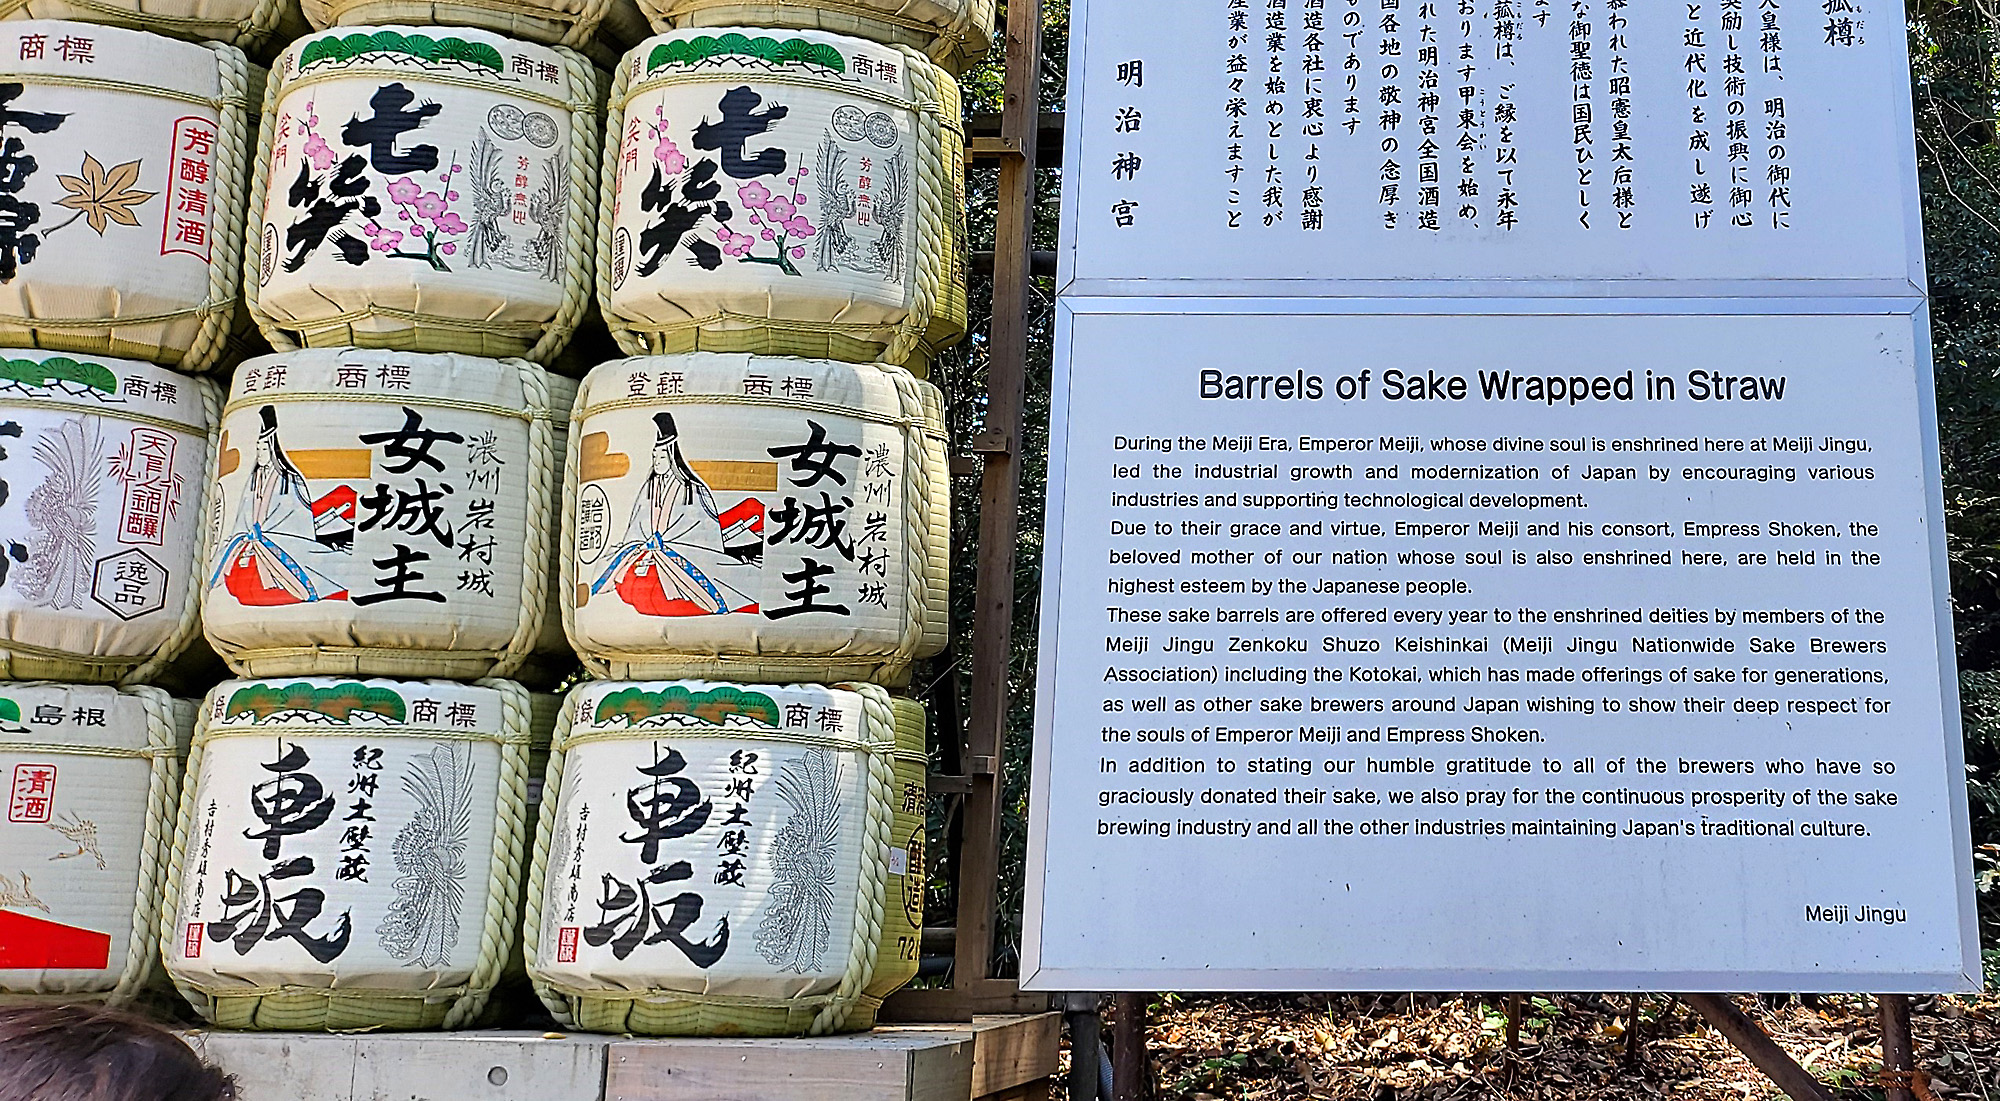 商標
芳醇清酒
商標
七笑
芳醇無比
商標
七笑
芳醇無比
商標
天賞銘醸
逸品
登録 商標
女城主
濃州岩村城
登録 商標
女城主
濃州岩村城
島根
清酒
商標
紀州土壁蔵
車坂
吉村秀雄商店
商標
紀州土壁蔵
車坂
吉村秀雄商店
菰樽
皇様は、明治の御代に
奨励し技術の振興に御心
と近代化を成し遂げ
慕われた昭憲皇太后様と
な御聖徳は国民ひとしく
ます
菰樽は、ご縁を以て永年
おります甲東会を始め、
れた明治神宮全国酒造
国各地の敬神の念厚き
ものであります
酒造各社に衷心より感謝
酒造業を始めとした我が
産業が益々栄えますこと
明治神宮
Barrels of Sake Wrapped in Straw
During the Meiji Era, Emperor Meiji, whose divine soul is enshrined here at Meiji Jingu,
led the industrial growth and modernization of Japan by encouraging various
industries and supporting technological development.
Due to their grace and virtue, Emperor Meiji and his consort, Empress Shoken, the
beloved mother of our nation whose soul is also enshrined here, are held in the
highest esteem by the Japanese people.
These sake barrels are offered every year to the enshrined deities by members of the
Meiji Jingu Zenkoku Shuzo Keishinkai (Meiji Jingu Nationwide Sake Brewers
Association) including the Kotokai, which has made offerings of sake for generations,
as well as other sake brewers around Japan wishing to show their deep respect for
the souls of Emperor Meiji and Empress Shoken.
In addition to stating our humble gratitude to all of the brewers who have so
graciously donated their sake, we also pray for the continuous prosperity of the sake
brewing industry and all the other industries maintaining Japan's traditional culture.
Meiji Jingu